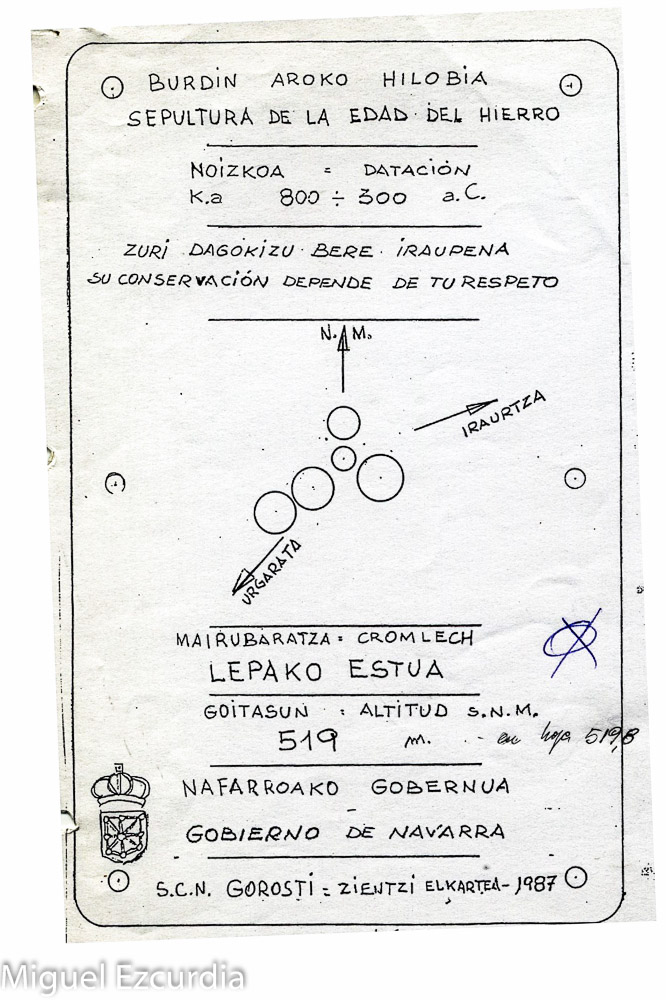 BURDIN AROKO HILOBIA
SEPULTURA DE LA EDAD DEL HIERRO
NOIZKOA = DATACIÓN
K.a 800 ÷ 300 a.C.
ZURI DAGOKIZU BERE IRAUPENA
SU CONSERVACIÓN DEPENDE DE TU RESPETO
N. M.
IRAURTZA
URGARATA
MAIRUBARATZA = CROMLECH
LEPAKO ESTUA
GOITASUN : ALTITUD S.N.M.
519 m. - en hoja 519,8
NAFARROAKO GOBERNUA
GOBIERNO DE NAVARRA
S.C.N. GOROSTI = ZIENTZI ELKARTEA - 1987
Miguel Ezcurdia